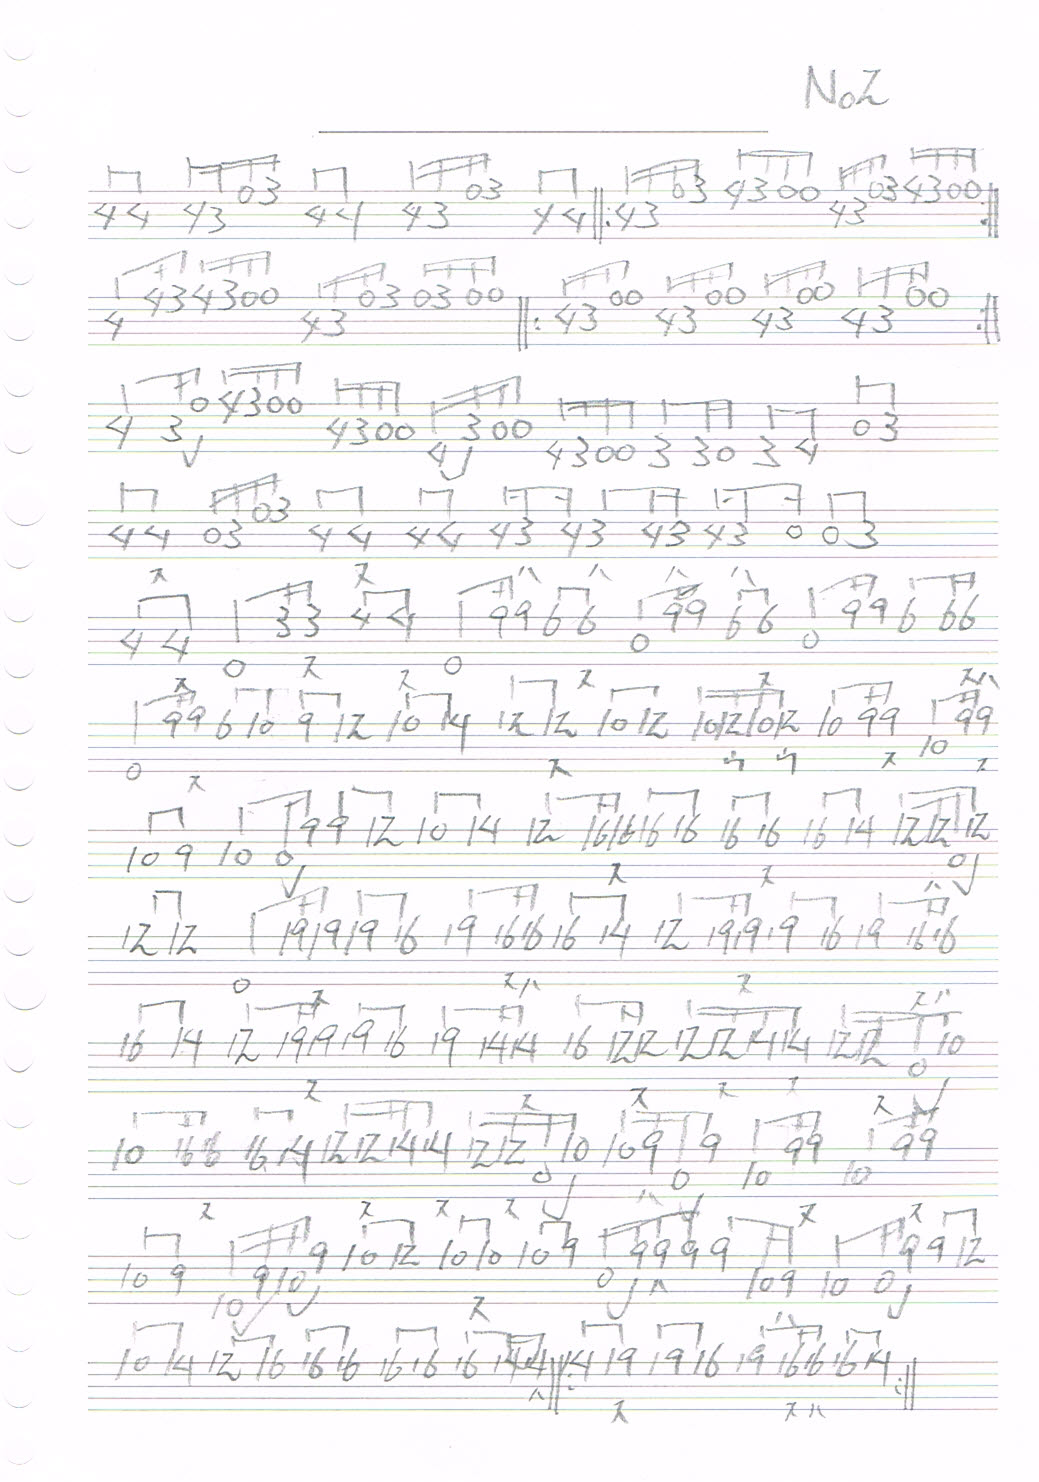 No2
44 43 03 44 43 03 44 43 03 4300 43 03 4300
4 43 4300 43 03 03 00 43 00 43 00 43 00 43 00
4 3 0 4300 4300 4 300 4300 3 30 3 4 03
44 03 03 44 44 43 43 43 43 0 03
ス ス ハ ハ ハ ハ
44 0 33 44 0 99 66 0 99 66 0 99 6 66
ス ス
ス ス ス スハ
0 99 6 10 9 12 10 14 12 12 10 12 10 12 10 12 10 99 10 99
ス ス ウ ウ ス ス
10 9 10 0 99 12 10 14 12 16 16 16 16 16 16 16 14 12 12 0 12
ス ス
ハ
12 12 0 19 19 19 16 19 16 16 16 14 12 19 19 19 16 19 16 16
ス スハ ス スハ
16 14 12 19 19 19 16 19 14 14 16 12 12 12 12 14 14 12 12 0 10
ス ス ス ス
ス ス
10 16 16 16 14 12 12 14 14 12 12 0 10 10 9 0 9 10 99 10 99
ス ス ス ス ハ ス ス
10 9 10 9 10 9 10 12 10 10 10 9 0 99 99 10 9 10 0 99 12
ス ハ
ハ
10 14 12 16 16 16 16 16 16 14 14 14 19 19 16 19 16 16 16 14
ハ ス スハ